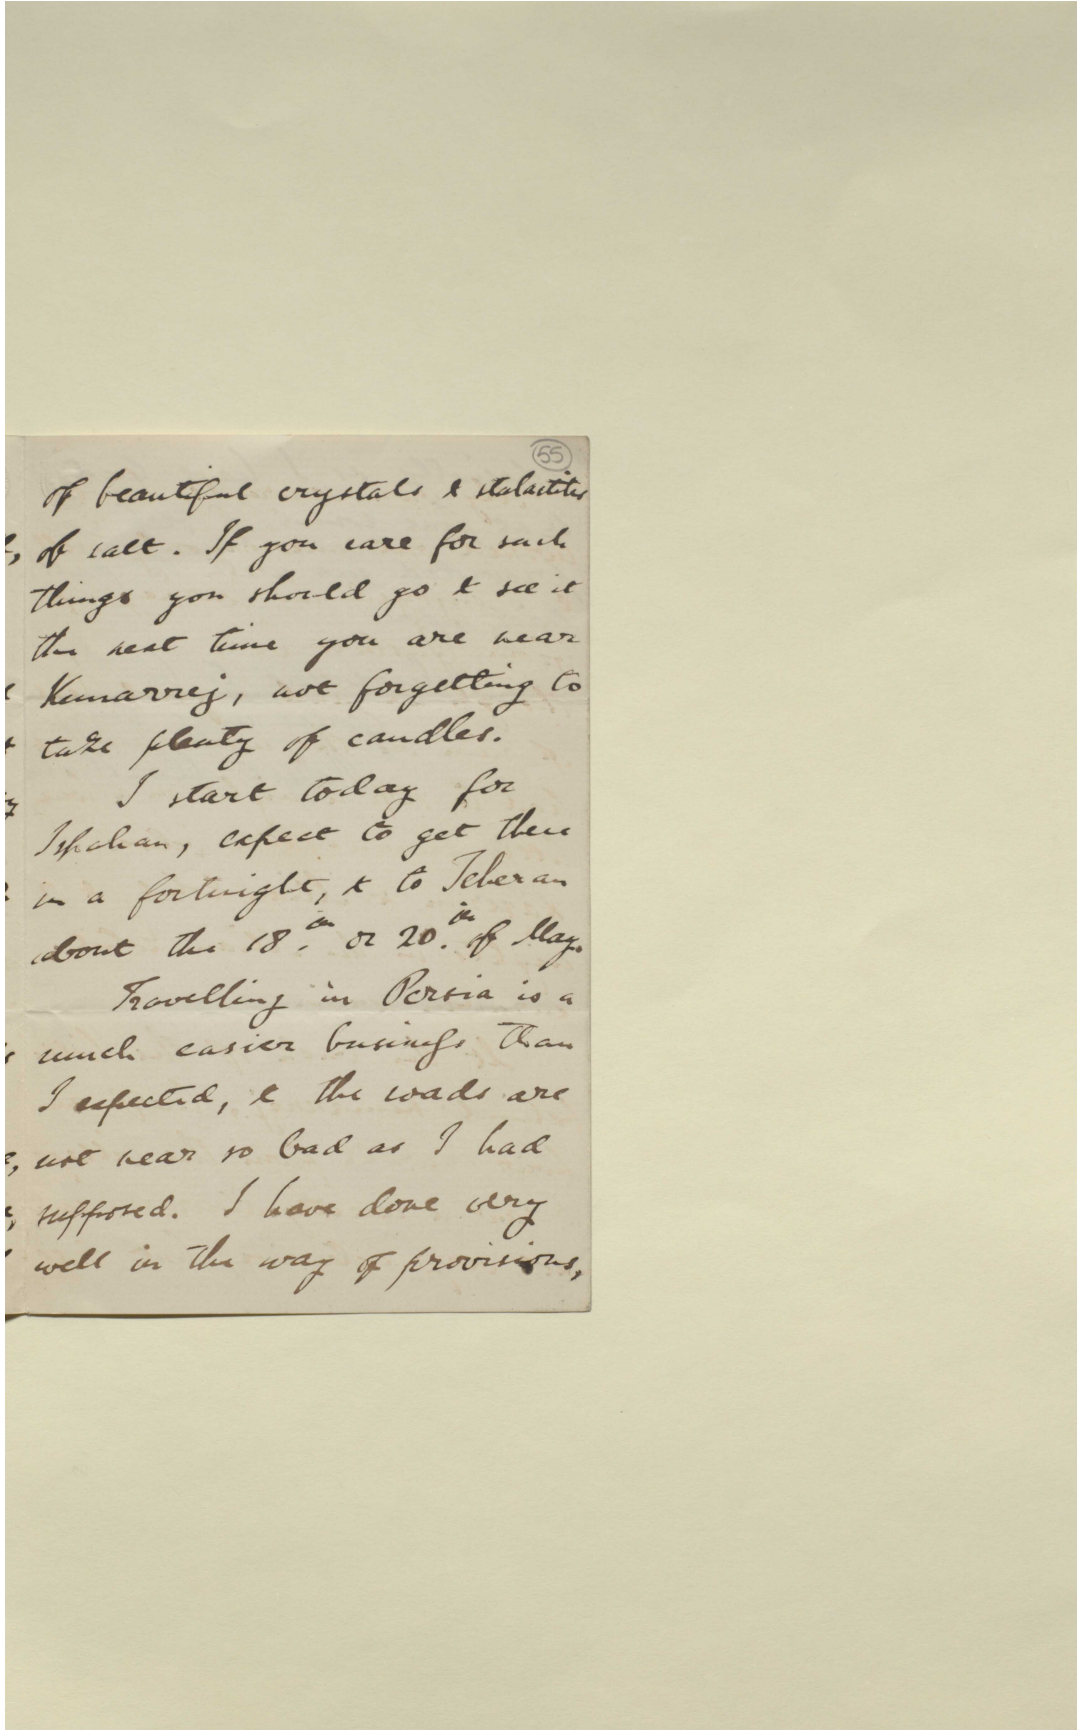 55
of beautiful crystals & stalactites
of salt. If you care for such
things you should go & see it
the next time you are near
Kumarrej, not forgetting to
take plenty of candles.
I start today for
Ispahan, expect to get there
in a fortnight, & to Teheran
about the 18.th or 20.th of May.
Travelling in Persia is a
much easier business than
I expected, & the roads are
not near so bad as I had
supposed. I have done very
well in the way of provisions,